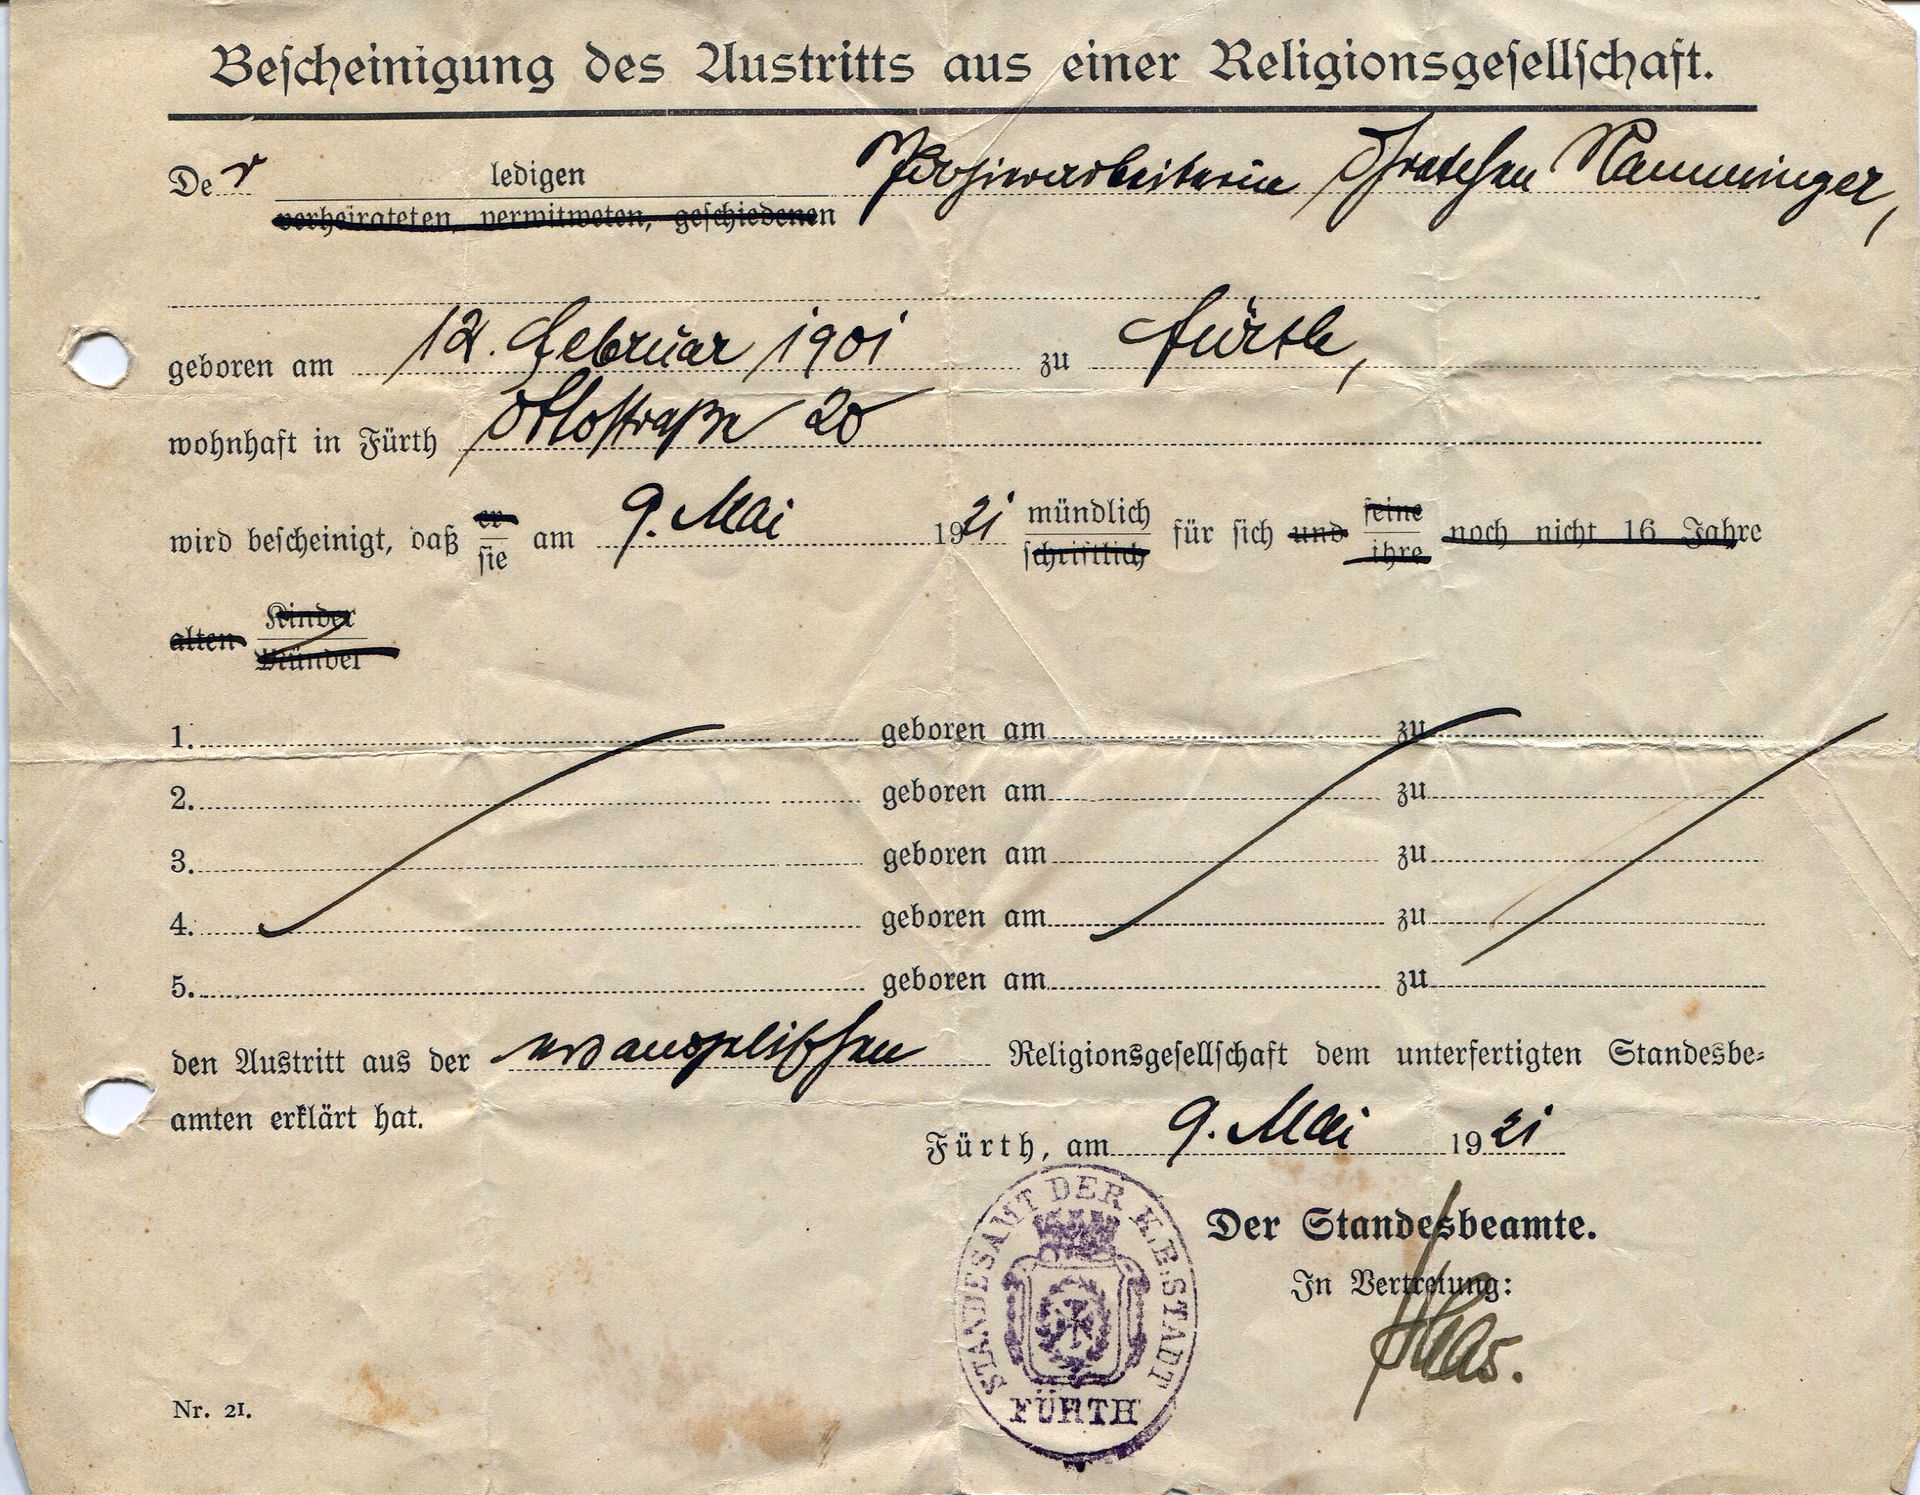 Bescheinigung des Austritts aus einer Religionsgesellschaft.
Der ledigen
verheirateten, verwitweten, geschiedenen
Namminger,
geboren am 12. Februar 1901 zu Fürth,
wohnhaft in Fürth Ottostraße 20
wird bescheinigt, daß er sie am 9. Mai 1921 mündlich schriftlich für sich und seine ihre noch nicht 16 Jahre
alten Kinder Mündel
1. geboren am zu
2. geboren am zu
3. geboren am zu
4. geboren am zu
5. geboren am zu
den Austritt aus der evangelischen Religionsgesellschaft dem unterfertigten Standesbe=
amten erklärt hat.
Fürth, am 9. Mai 1921
Der Standesbeamte.
In Vertretung:
STANDESAMT DER K. B. STADT
FÜRTH
Nr. 21.